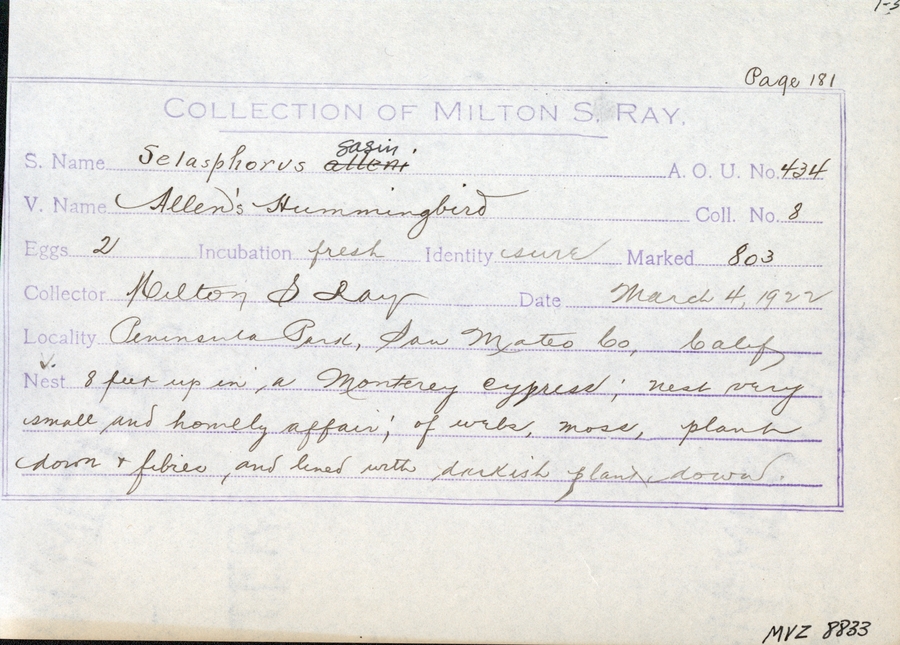 Page 181
COLLECTION OF MILTON S. RAY.
sasin.
S. Name Selasphorus alleni A. O. U. No. 434
V. Name Allen's Hummingbird Coll. No. 8
Eggs 2 Incubation fresh Identity sure Marked 803
Collector Milton S Ray Date March 4, 1922
Locality Peninsula Park, San Mateo Co, Calif
Nest 8 feet up in a Monterey cypress; nest very
small and homely affair; of webs, moss, plant
down & fibres and lined with darkish plant down.
MVZ 8833